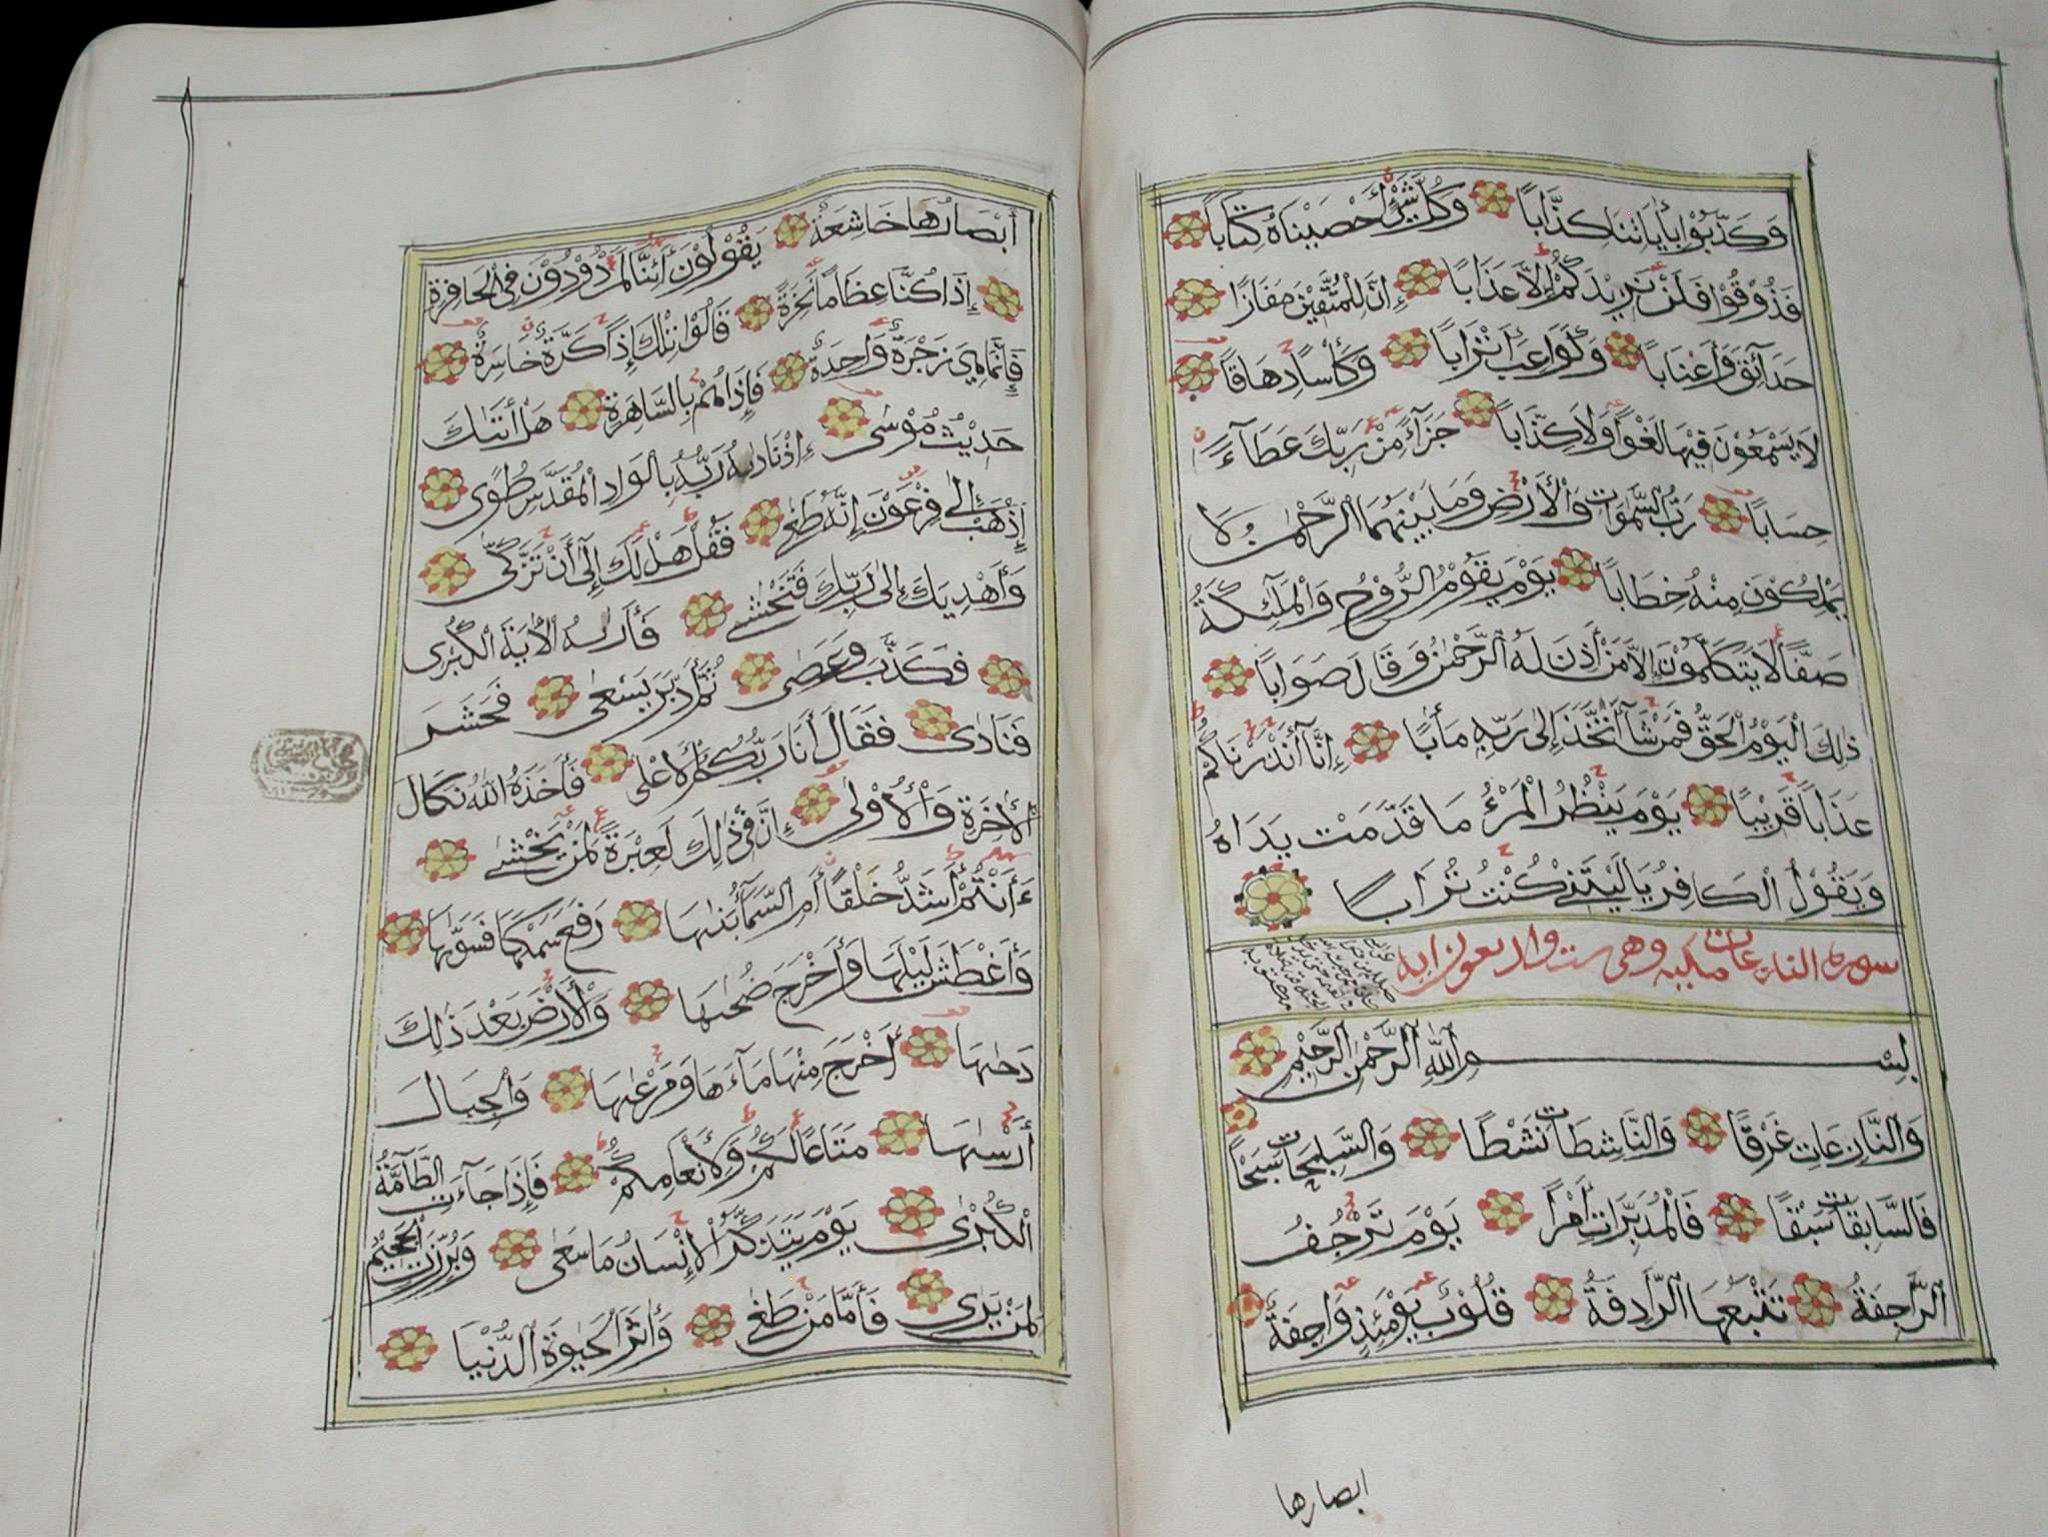 وَكَذَّبُوْا بِأٰيَاتِنَا كِذَّابًا وَكُلَّ شَيْءٍ أَحْصَيْنَاهُ كِتَابًا
فَذُوْقُوْا فَلَنْ نَزِيْدَكُمْ إِلَّا عَذَابًا إِنَّ لِلْمُتَّقِيْنَ مَفَازًا
حَدَآئِقَ وَأَعْنَابًا وَكَوَاعِبَ أَتْرَابًا وَكَأْسًا دِهَاقًا
لَا يَسْمَعُوْنَ فِيْهَا لَغْوًا وَلَا كِذَّابًا جَزَآءً مِنْ رَبِّكَ عَطَآءً
حِسَابًا رَبِّ السَّمٰوَاتِ وَالْأَرْضِ وَمَا بَيْنَهُمَا الرَّحْمٰنِ لَا
يَمْلِكُوْنَ مِنْهُ خِطَابًا يَوْمَ يَقُوْمُ الرُّوْحُ وَالْمَلٰٓئِكَةُ
صَفًّا لَا يَتَكَلَّمُوْنَ إِلَّا مَنْ أَذِنَ لَهُ الرَّحْمٰنُ وَقَالَ صَوَابًا
ذٰلِكَ الْيَوْمُ الْحَقُّ فَمَنْ شَآءَ اتَّخَذَ إِلٰى رَبِّهِ مَأٰبًا إِنَّآ أَنْذَرْنَاكُمْ
عَذَابًا قَرِيْبًا يَوْمَ يَنْظُرُ الْمَرْءُ مَا قَدَّمَتْ يَدَاهُ
وَيَقُوْلُ الْكَافِرُ يَا لَيْتَنِيْ كُنْتُ تُرَابًا
سورة النازعات مكية وهي ست واربعون اية
بِسْمِ اللّٰهِ الرَّحْمٰنِ الرَّحِيْمِ
وَالنَّازِعَاتِ غَرْقًا وَالنَّاشِطَاتِ نَشْطًا وَالسّٰبِحَاتِ سَبْحًا
فَالسَّابِقَاتِ سَبْقًا فَالْمُدَبِّرَاتِ أَمْرًا يَوْمَ تَرْجُفُ
الرَّاجِفَةُ تَتْبَعُهَا الرَّادِفَةُ قُلُوْبٌ يَوْمَئِذٍ وَاجِفَةٌ
ابصارها
أَبْصَارُهَا خَاشِعَةٌ يَقُوْلُوْنَ أَئِنَّا لَمَرْدُوْدُوْنَ فِي الْحَافِرَةِ
إِذَا كُنَّا عِظَامًا نَخِرَةً قَالُوْا تِلْكَ إِذًا كَرَّةٌ خَاسِرَةٌ
فَإِنَّمَا هِيَ زَجْرَةٌ وَاحِدَةٌ فَإِذَا هُمْ بِالسَّاهِرَةِ هَلْ أَتٰىكَ
حَدِيْثُ مُوْسٰى إِذْ نَادٰىهُ رَبُّهُ بِالْوَادِ الْمُقَدَّسِ طُوًى
إِذْهَبْ إِلٰى فِرْعَوْنَ إِنَّهُ طَغٰى فَقُلْ هَلْ لَكَ إِلٰٓى أَنْ تَزَكّٰى
وَأَهْدِيَكَ إِلٰى رَبِّكَ فَتَخْشٰى فَأَرٰىهُ الْاٰيَةَ الْكُبْرٰى
فَكَذَّبَ وَعَصٰى ثُمَّ أَدْبَرَ يَسْعٰى فَحَشَرَ
فَنَادٰى فَقَالَ أَنَا رَبُّكُمُ الْأَعْلٰى فَأَخَذَهُ اللّٰهُ نَكَالَ
الْأٰخِرَةِ وَالْأُوْلٰى إِنَّ فِيْ ذٰلِكَ لَعِبْرَةً لِمَنْ يَخْشٰى
ءَأَنْتُمْ أَشَدُّ خَلْقًا أَمِ السَّمَآءُ بَنٰىهَا رَفَعَ سَمْكَهَا فَسَوّٰىهَا
وَأَغْطَشَ لَيْلَهَا وَأَخْرَجَ ضُحٰىهَا وَالْأَرْضَ بَعْدَ ذٰلِكَ
دَحٰىهَا أَخْرَجَ مِنْهَا مَآءَهَا وَمَرْعٰىهَا وَالْجِبَالَ
أَرْسٰىهَا مَتَاعًا لَكُمْ وَلِأَنْعَامِكُمْ فَإِذَا جَآءَتِ الطَّآمَّةُ
الْكُبْرٰى يَوْمَ يَتَذَكَّرُ الْإِنْسَانُ مَا سَعٰى وَبُرِّزَتِ الْجَحِيْمُ
لِمَنْ يَرٰى فَأَمَّا مَنْ طَغٰى وَأٰثَرَ الْحَيٰوةَ الدُّنْيَا